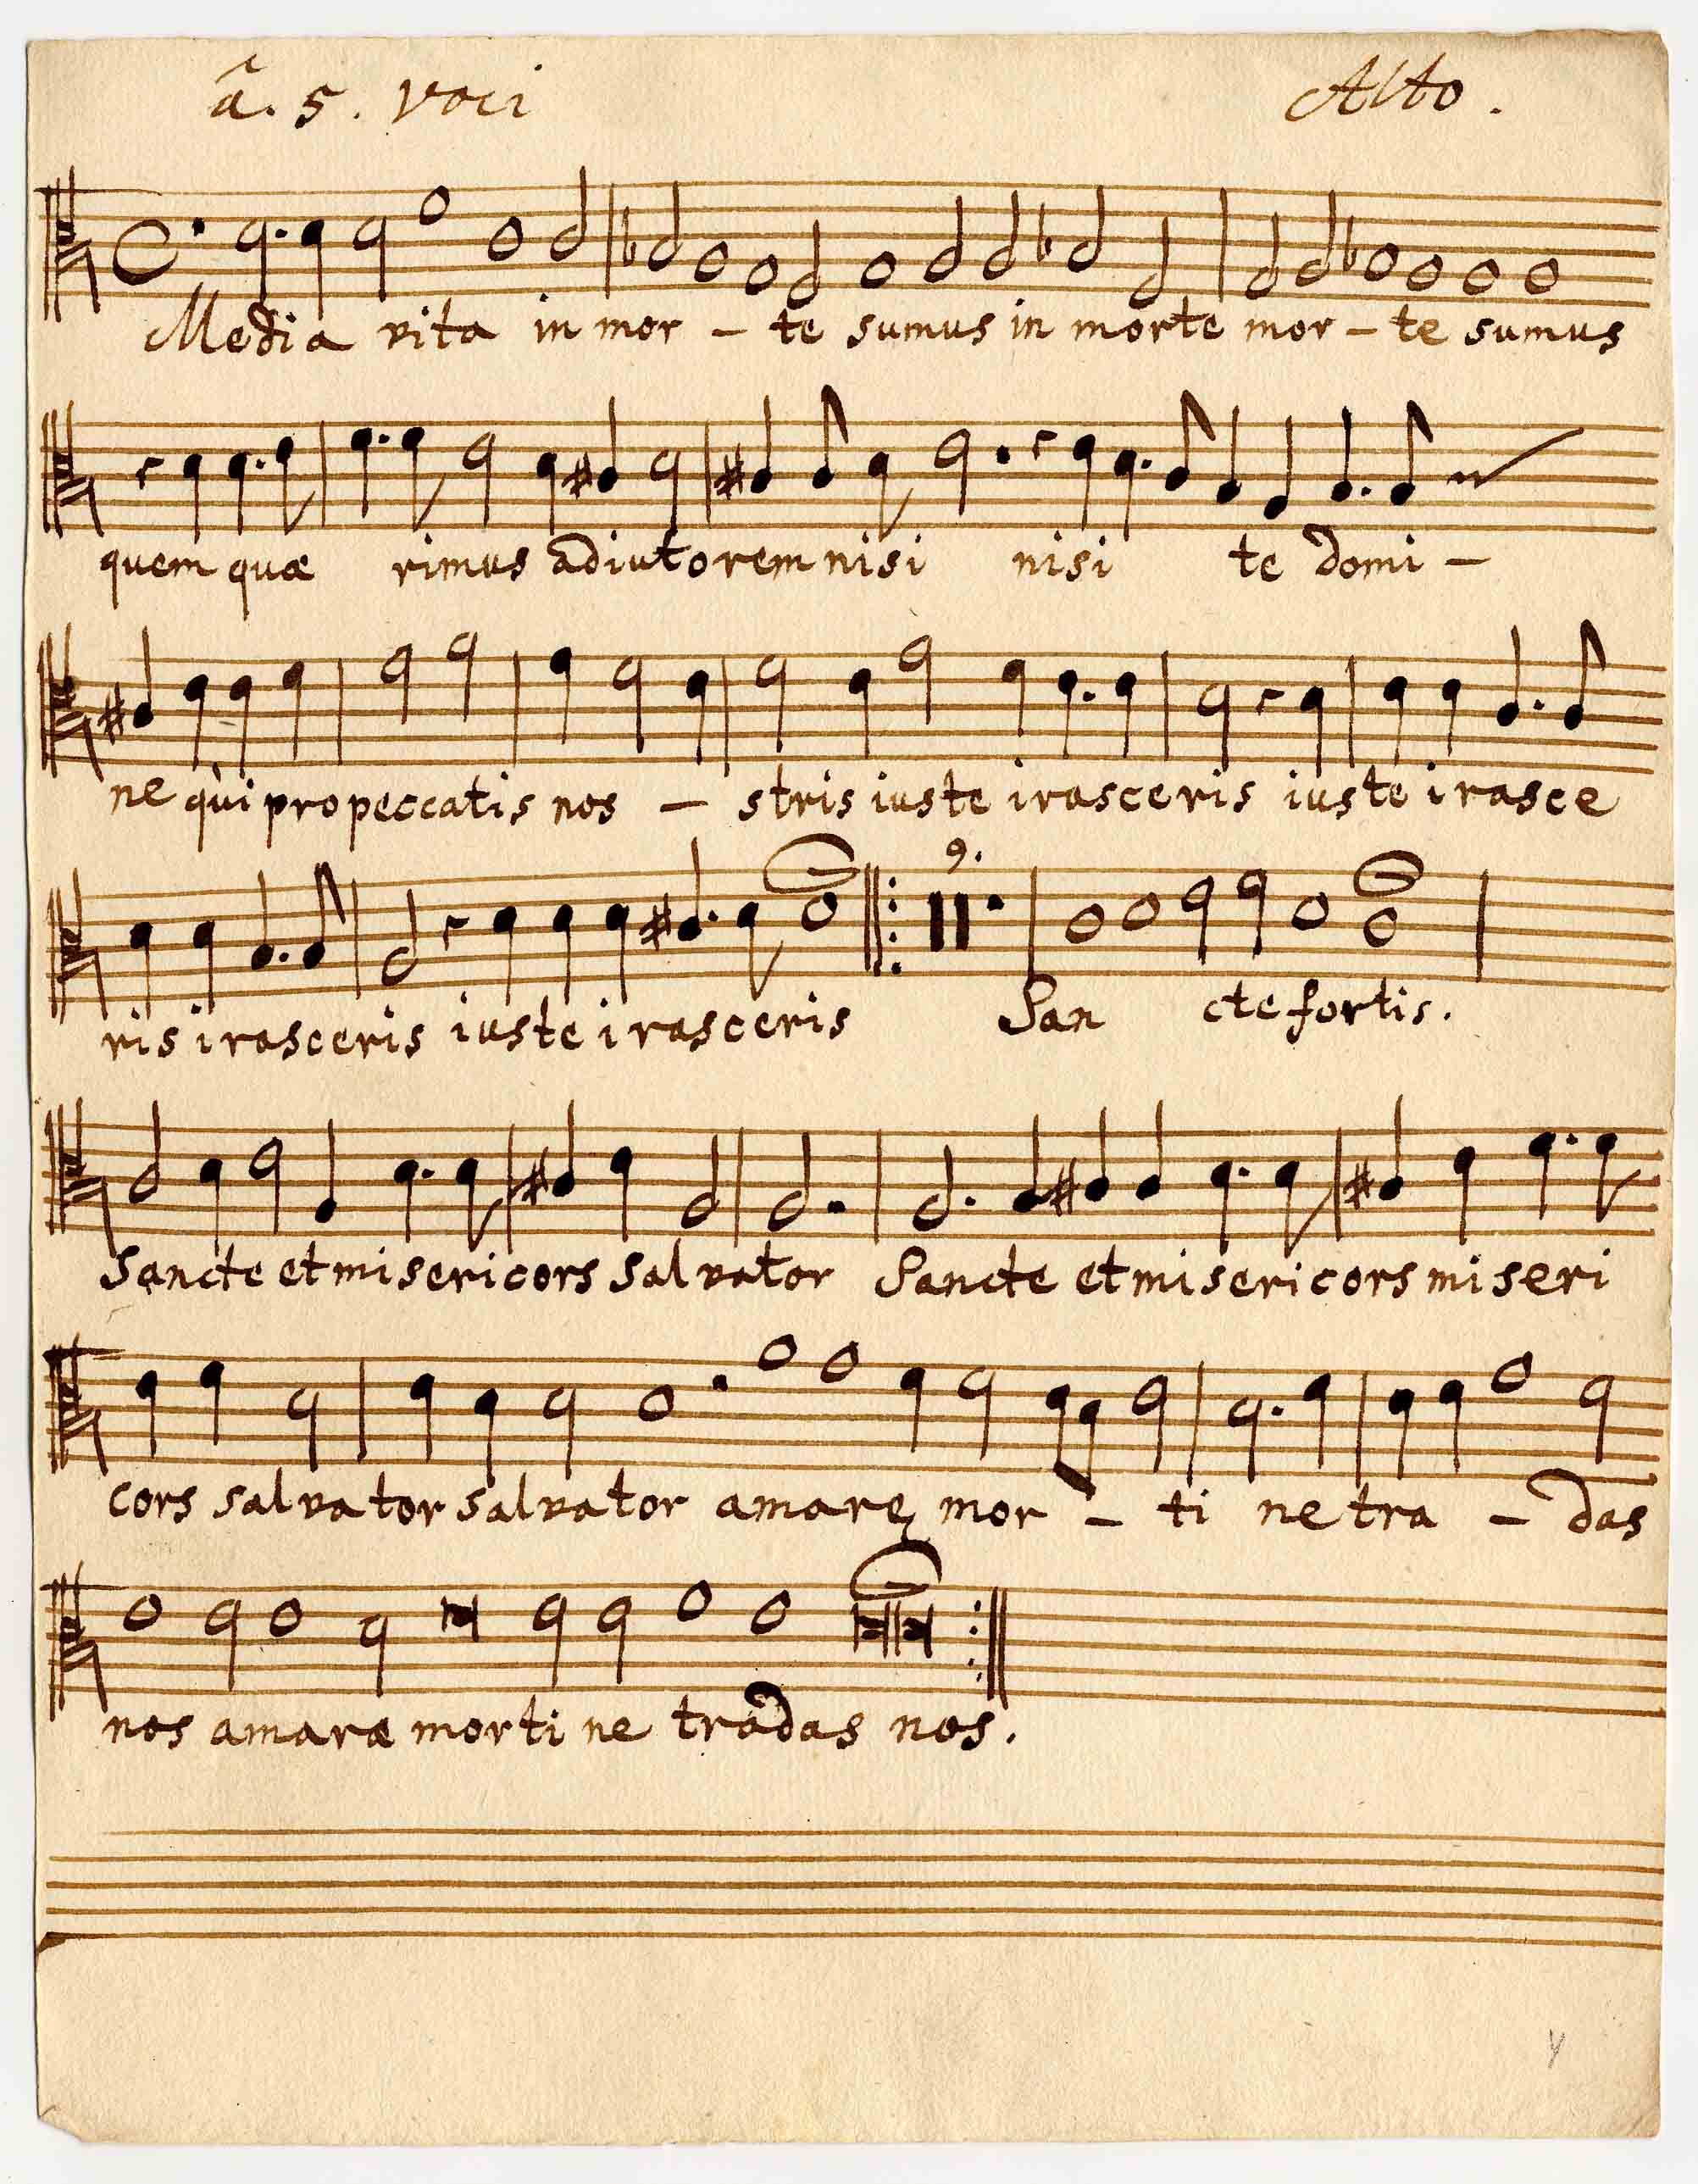 â. 5. Voci Alto.
Media vita in mor - te sumus in morte mor - te sumus
quem quæ rimus adiutorem nisi nisi te domi -
ne qùi pro peccatis nos - stris iuste irasceris iuste irasce
9.
ris irasceris iuste irasceris San cte fortis.
Sancte et misericors salvator Sancte et misericors miseri
cors salvator salvator amarę mor - ti ne tra - das
nos amaræ morti ne tradas nos.